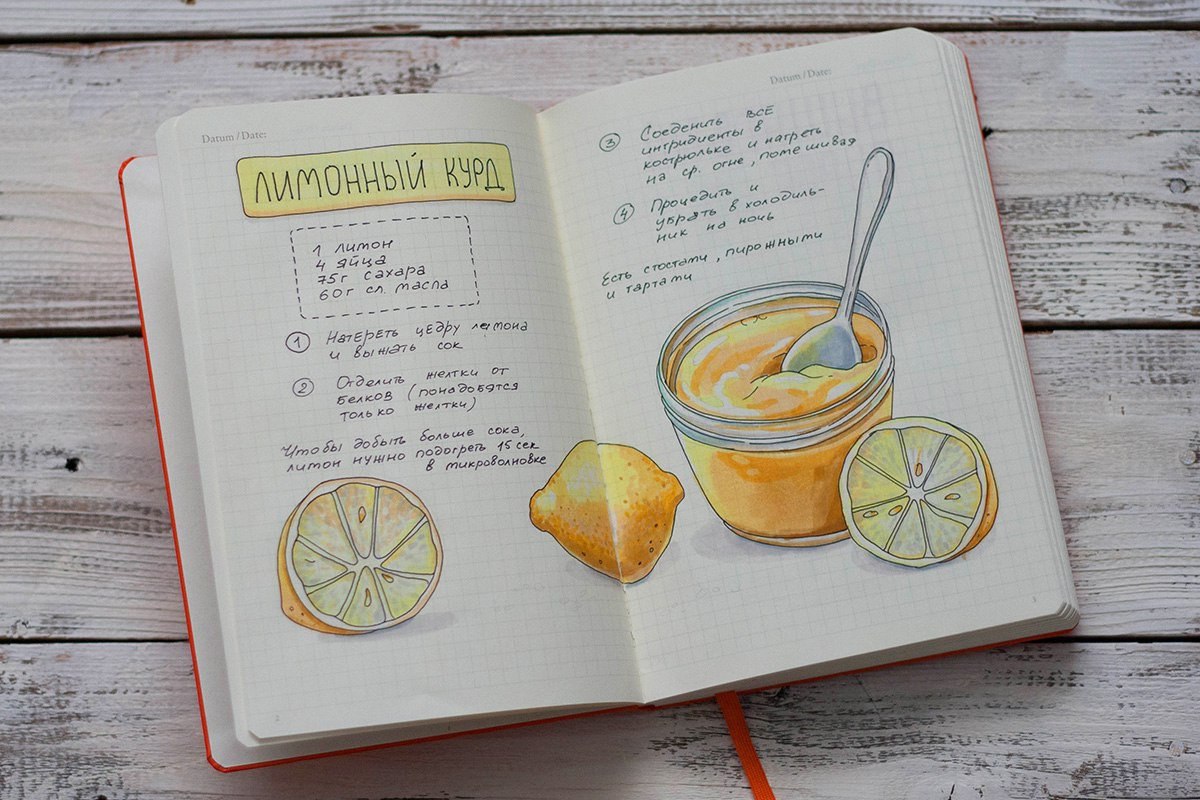 Datum / Date:
ЛИМОННЫЙ КУРД
1 лимон
4 яйца
75г сахара
60г сл. масла
1 Натереть цедру лимона
и выжать сок
2 Отделить желтки от
белков (понадобятся
только желтки)
Чтобы добыть больше сока,
лимон нужно подогреть 15 сек
в микроволновке
Datum / Date:
3 Соеденить все
интридиенты в
кострюльке и нагреть
на ср. огне, помешивая
4 Процедить и
убрать в холодиль-
ник на ночь
Есть с тостами, пирожными
и тартами